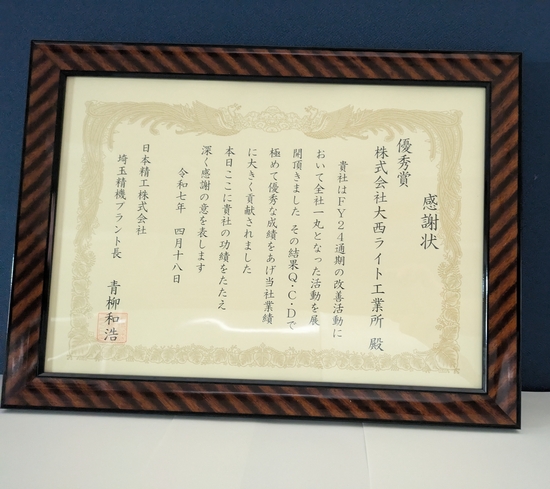 感謝状
優秀賞
株式会社大西ライト工業所 殿
貴社はFY24通期の改善活動に
おいて全社一丸となった活動を展
開頂きました その結果Q・C・Dで
極めて優秀な成績をあげ当社業績
に大きく貢献されました
本日ここに貴社の功績をたたえ
深く感謝の意を表します
令和七年 四月十八日
日本精工株式会社
埼玉精機プラント長 青柳和浩